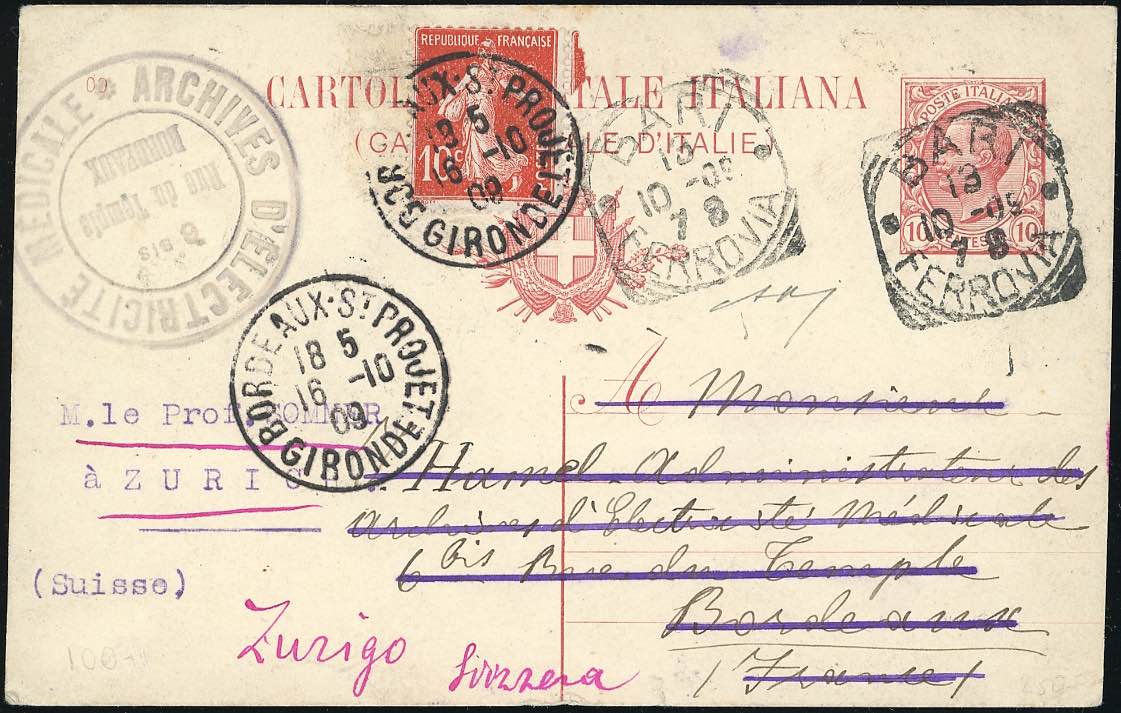 CARTOLINA POSTALE ITALIANA
(CA LE D'ITALIE)
09
ARCHIVES D'ELECTRICITÉ MEDICALE
6 BIS
Rue du Temple
BORDEAUX
REPUBLIQUE FRANÇAISE
10c
BORDEAUX-ST PROJET
18 5
16 -10
09
GIRONDE
BARI
13
10 -09
7 8
FERROVIA
POSTE ITALIANE
10 10
BARI
13
10 -09
7 8
FERROVIA
BORDEAUX-ST PROJET
18 5
16 -10
09
GIRONDE
M.le Prof. SOMMER
à ZURICH
(Suisse)
Zurigo
Svizzera
A Monsieur
Hamel Administrateur des
Archives d'Electricité Médicale
6 bis Rue du Temple
Bordeaux
(France)